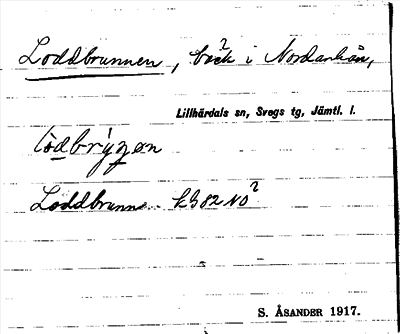 Loddbrunnen, bäck? i Nordankån,
Lillhärdals sn, Svegs tg, Jämtl. l.
Loddbrunn- k982NO?
S. ÅSANDER 1917.